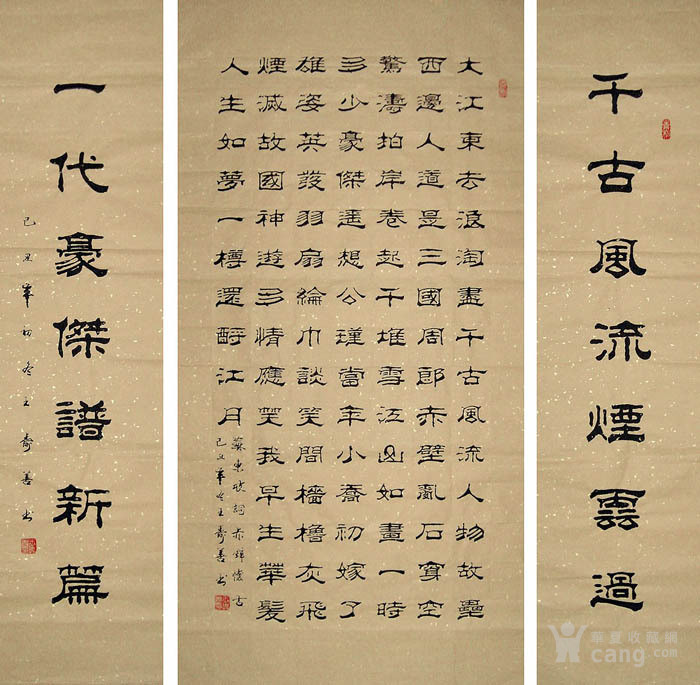 千古風流煙雲過
大江東去浪淘盡千古風流人物故壘
西邊人道是三國周郎赤壁亂石穿空
驚濤拍岸卷起千堆雪江山如畫一時
多少豪傑遙想公瑾當年小喬初嫁了
雄姿英發羽扇綸巾談笑間檣櫓灰飛
煙滅故國神遊多情應笑我早生華髮
人生如夢一樽還酹江月
蘇東坡詞赤壁懷古
己丑年冬王壽善书
一代豪傑譜新篇
己丑年初冬王壽善书
華夏收藏網
cang.com